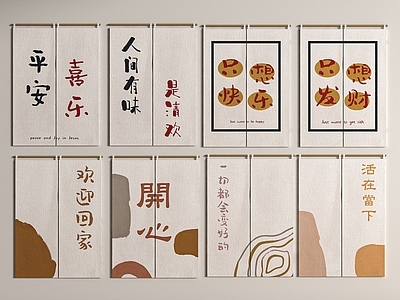 平安
喜乐
peace and joy in heart
人间有味
是清欢
只想
快乐
just want to be happy
只想
发财
just want to get rich
欢迎回家
開心
一切都会变好的
活在當下